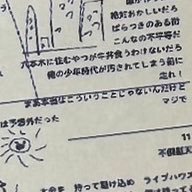 絶対おかしいだろ
ばらつきのある街
こんなの不平等だ
六本木に住むやつが牛丼食うわけないだろ
俺の少年時代が汚されてしまう前に
走れ!
まあ本当はこういうことじゃないんだけど
マジで
は予想外だった
11
持って駆け込め ライブハウス